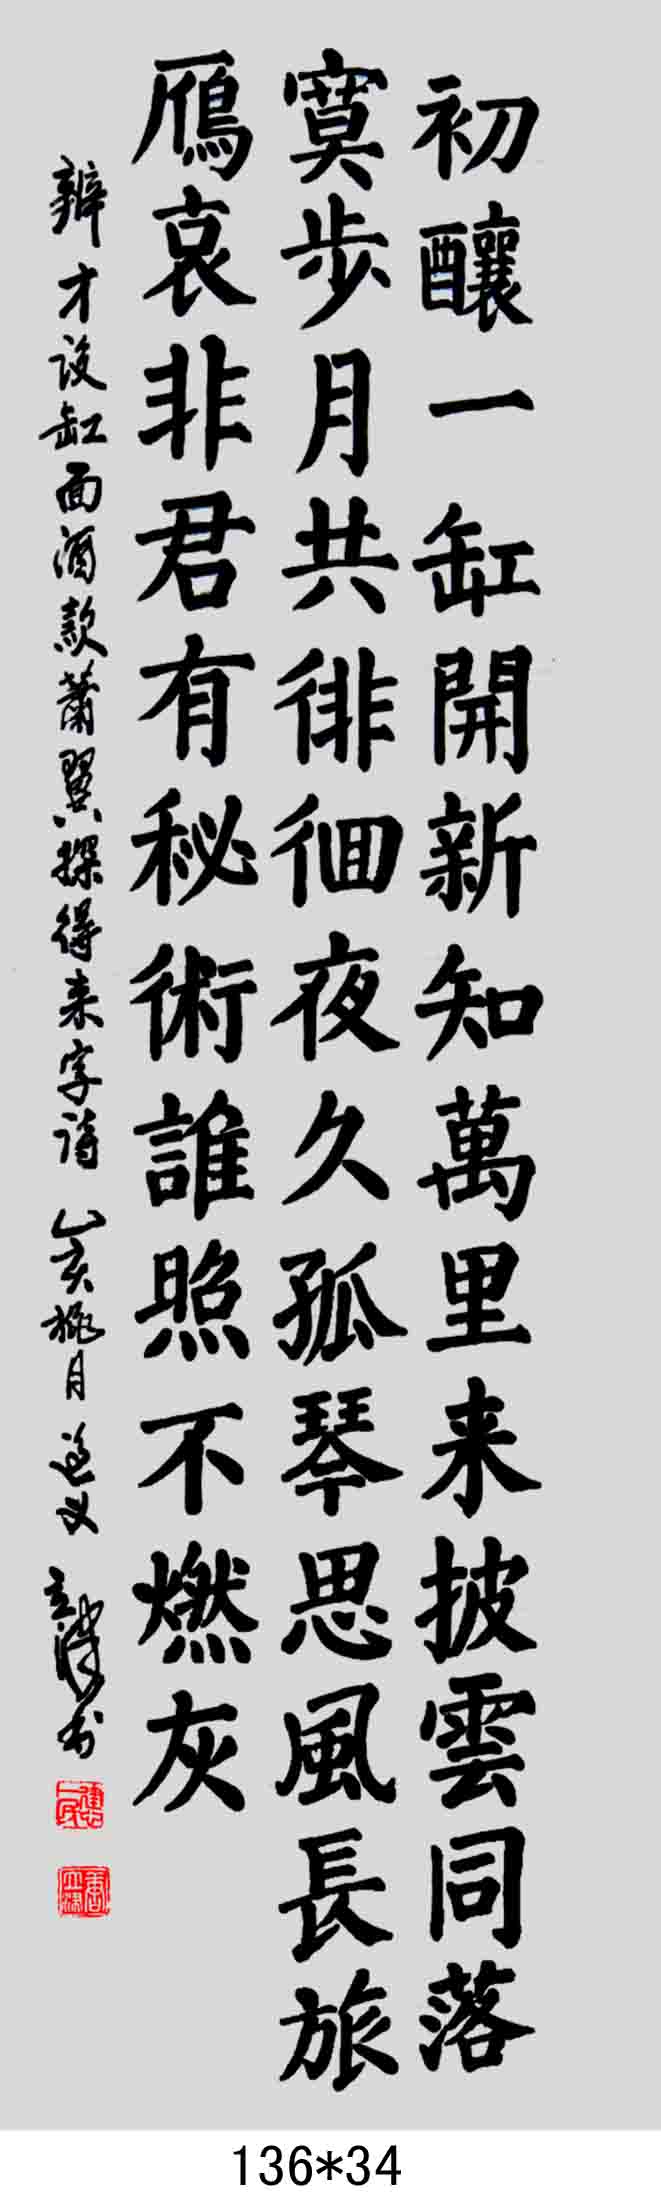 初釀一缸開新知萬里来披雲同落
寞步月共徘徊夜久孤琴思風長旅
鴈哀非君有秘術誰照不燃灰
辨才设缸面酒款蕭翼探得来字诗 乙亥桃月遵义 立书
136*34